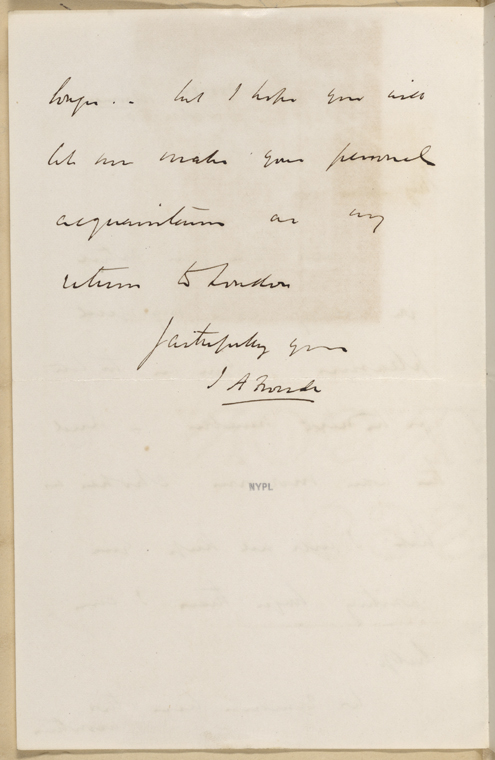 longer.. but I hope you will
let me make your personal
acquaintance on my
return to London
faithfully yours
J A Froude
NYPL